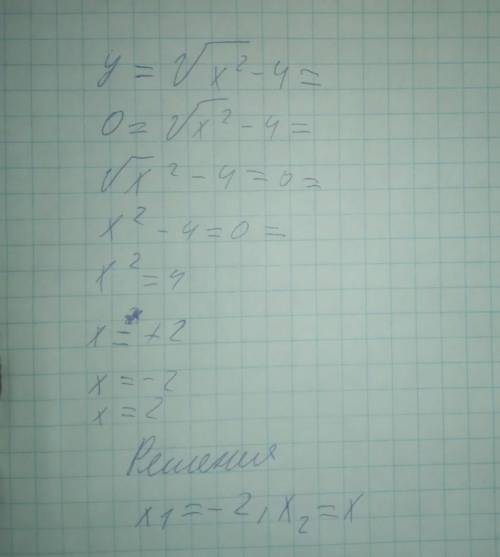 y = √x² - 4 =
0 = √x² - 4 =
√x² - 4 = 0 =
x² - 4 = 0 =
x² = 4
x = +2
x = -2
x = 2
Решения
x₁ = -2, x₂ = x